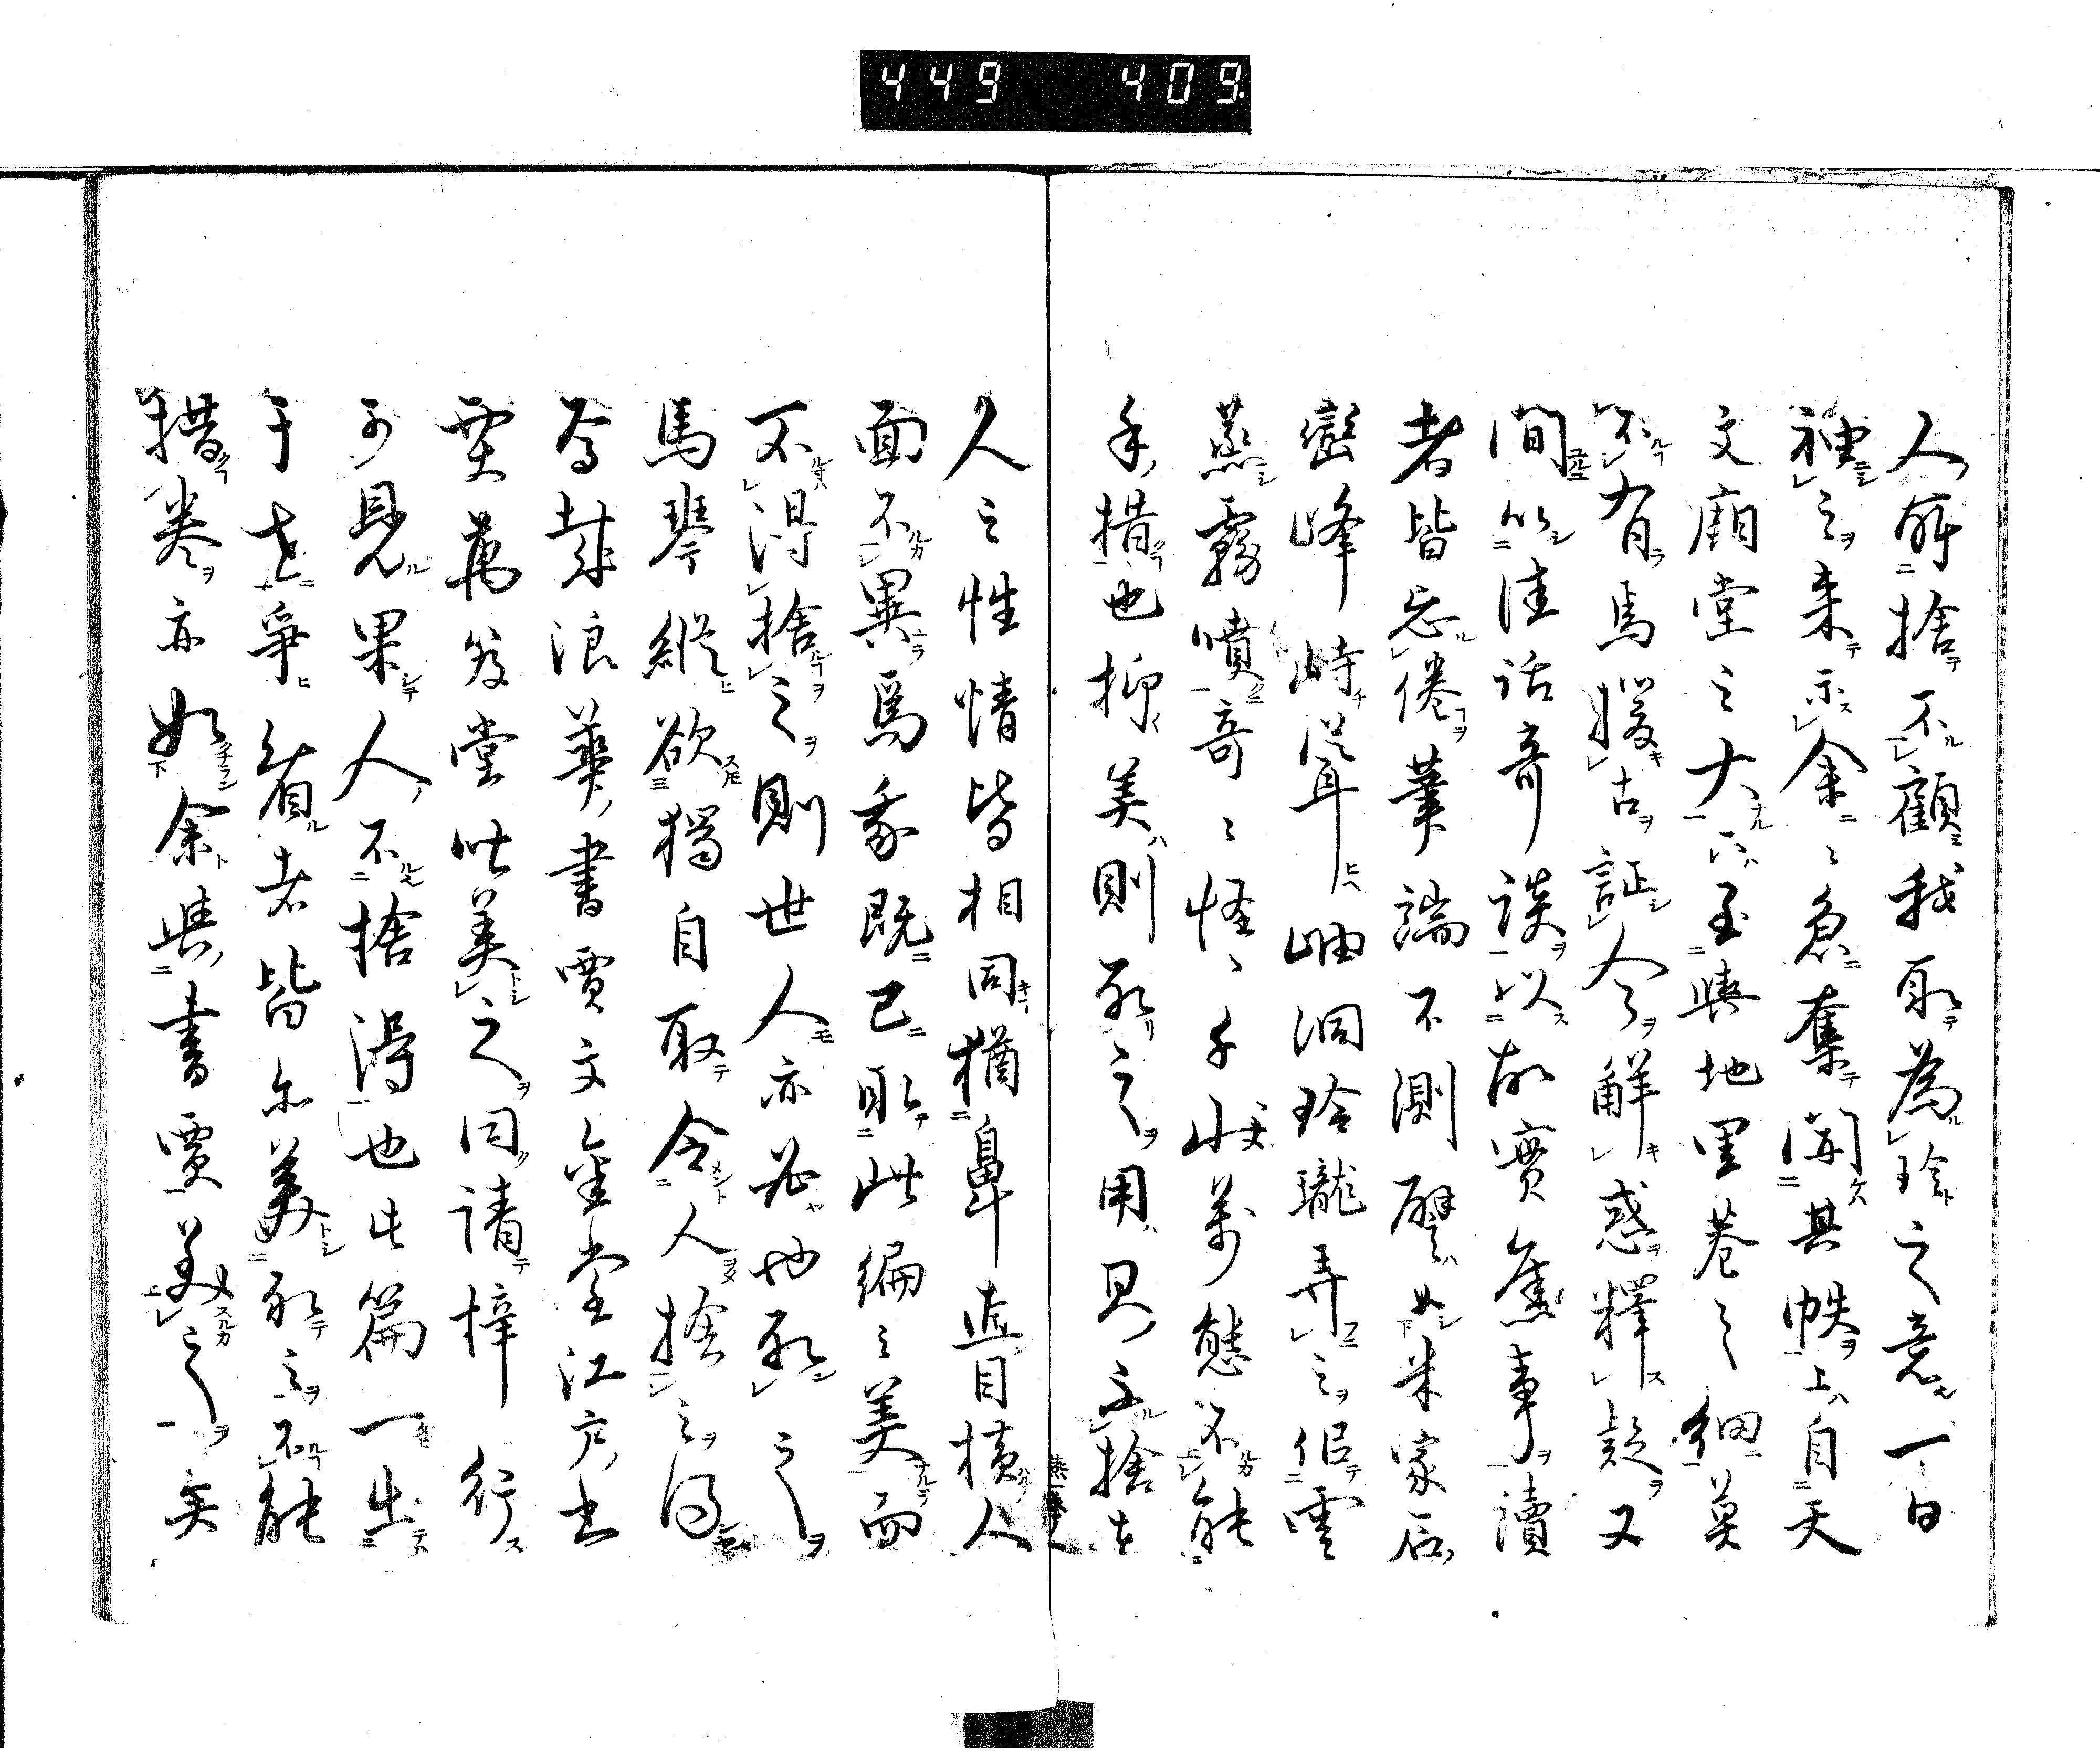 449 409
人所捨不顧我取為珍之意一日
袖之来示余〻急奪開其帙上自天
文廟堂之大下至輿地里巷之細莫
不有焉援古証今解惑釋疑又
間以佳話奇談以故實舊事讀
者皆忘倦筆端不測譬如米家石
巒峰峙聳岫洞玲瓏弄之伹雲
蒸霧噴奇〻怪〻千状萬態不能
手措也抑美則取之用具不捨在
人之性情皆相同猶鼻直目横人
面不異焉我既已取此編之美而
不得捨之則世人亦必也取之
馬琴縱欲獨自取令人捨之得
乎哉浪華書賈文金堂江戸書
賈萬笈堂皆美之同請梓行
可見果人不捨得也此篇一出
于世爭看者皆尓美取之不能
措巻亦如余與書賈美之矣